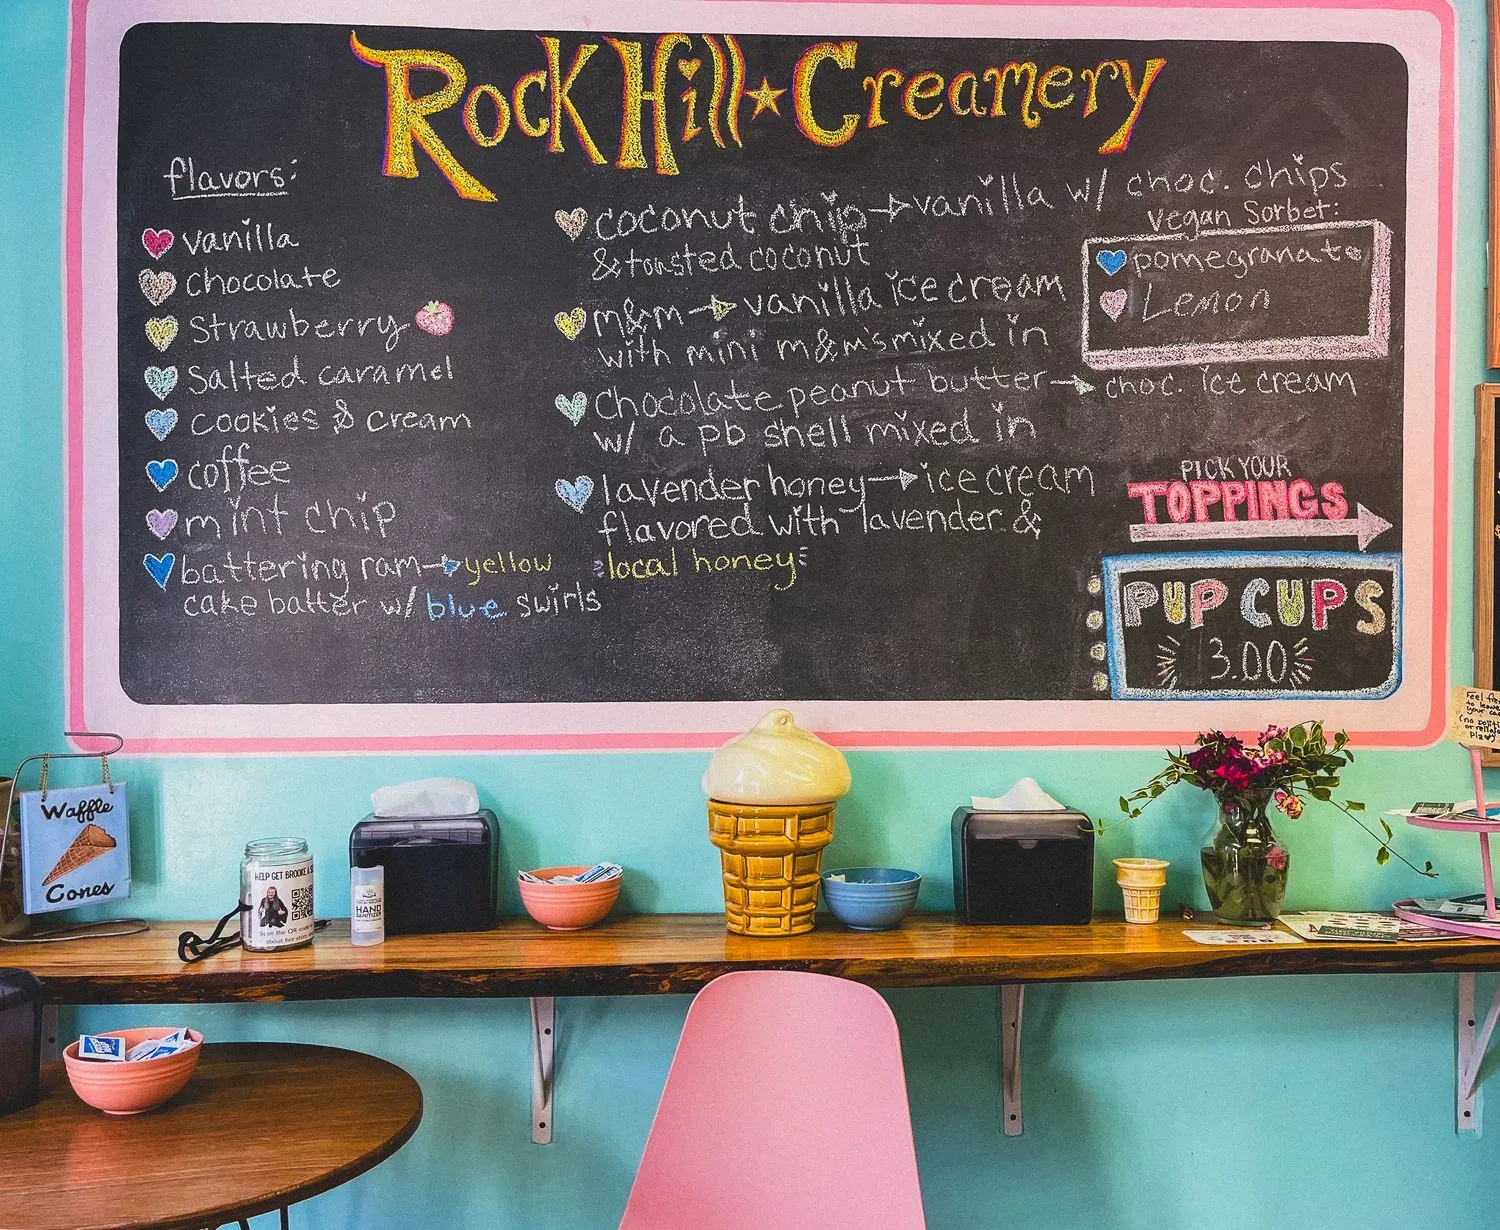 Rock Hill Creamery
flavors:
vanilla
chocolate
Strawberry
Salted caramel
cookies & cream
coffee
mint chip
battering ram → yellow
cake batter w/ blue swirls
coconut chip → vanilla w/ choc. chips
& toasted coconut
m&m → vanilla ice cream
with mini m&m's mixed in
chocolate peanut butter → choc. ice cream
w/ a pb shell mixed in
lavender honey → ice cream
flavored with lavender &
local honey
Vegan Sorbet:
pomegranate
Lemon
PICK YOUR
TOPPINGS
PUP CUPS
3.00
Waffle
Cones
HELP GET BROOKE A
Scan the QR
about her story
HAND
SANITIZER
Feel
to leave
your
(no